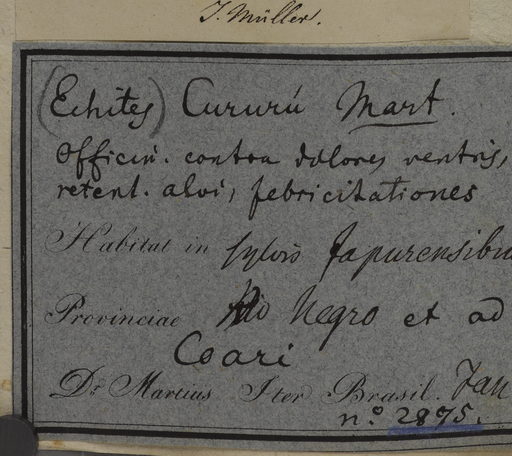 J. Müller.
(Echites) Cururú Mart.
Officin. contra dolores ventris,
retent. alvi, febricitationes
Habitat in sylvis Japurensibu
Provinciae Rio Negro et ad
Coari
Dr. Martius Iter Brasil. Jan
n.o 2875.